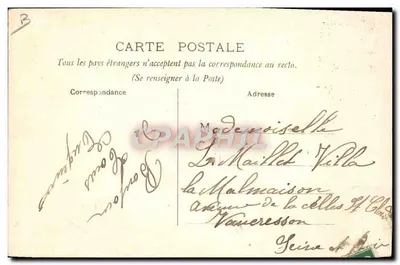 B
CARTE POSTALE
Tous les pays étrangers n'acceptent pas la correspondance au recto.
(Se renseigner à la Poste)
Correspondance
Adresse
Bonjour
Mademoiselle
Le Maillet Villa
la Malmaison
avenue de la Celles St Cloud
Vaucresson
Seine et Oise
CPAPHIL
www.cparama.com